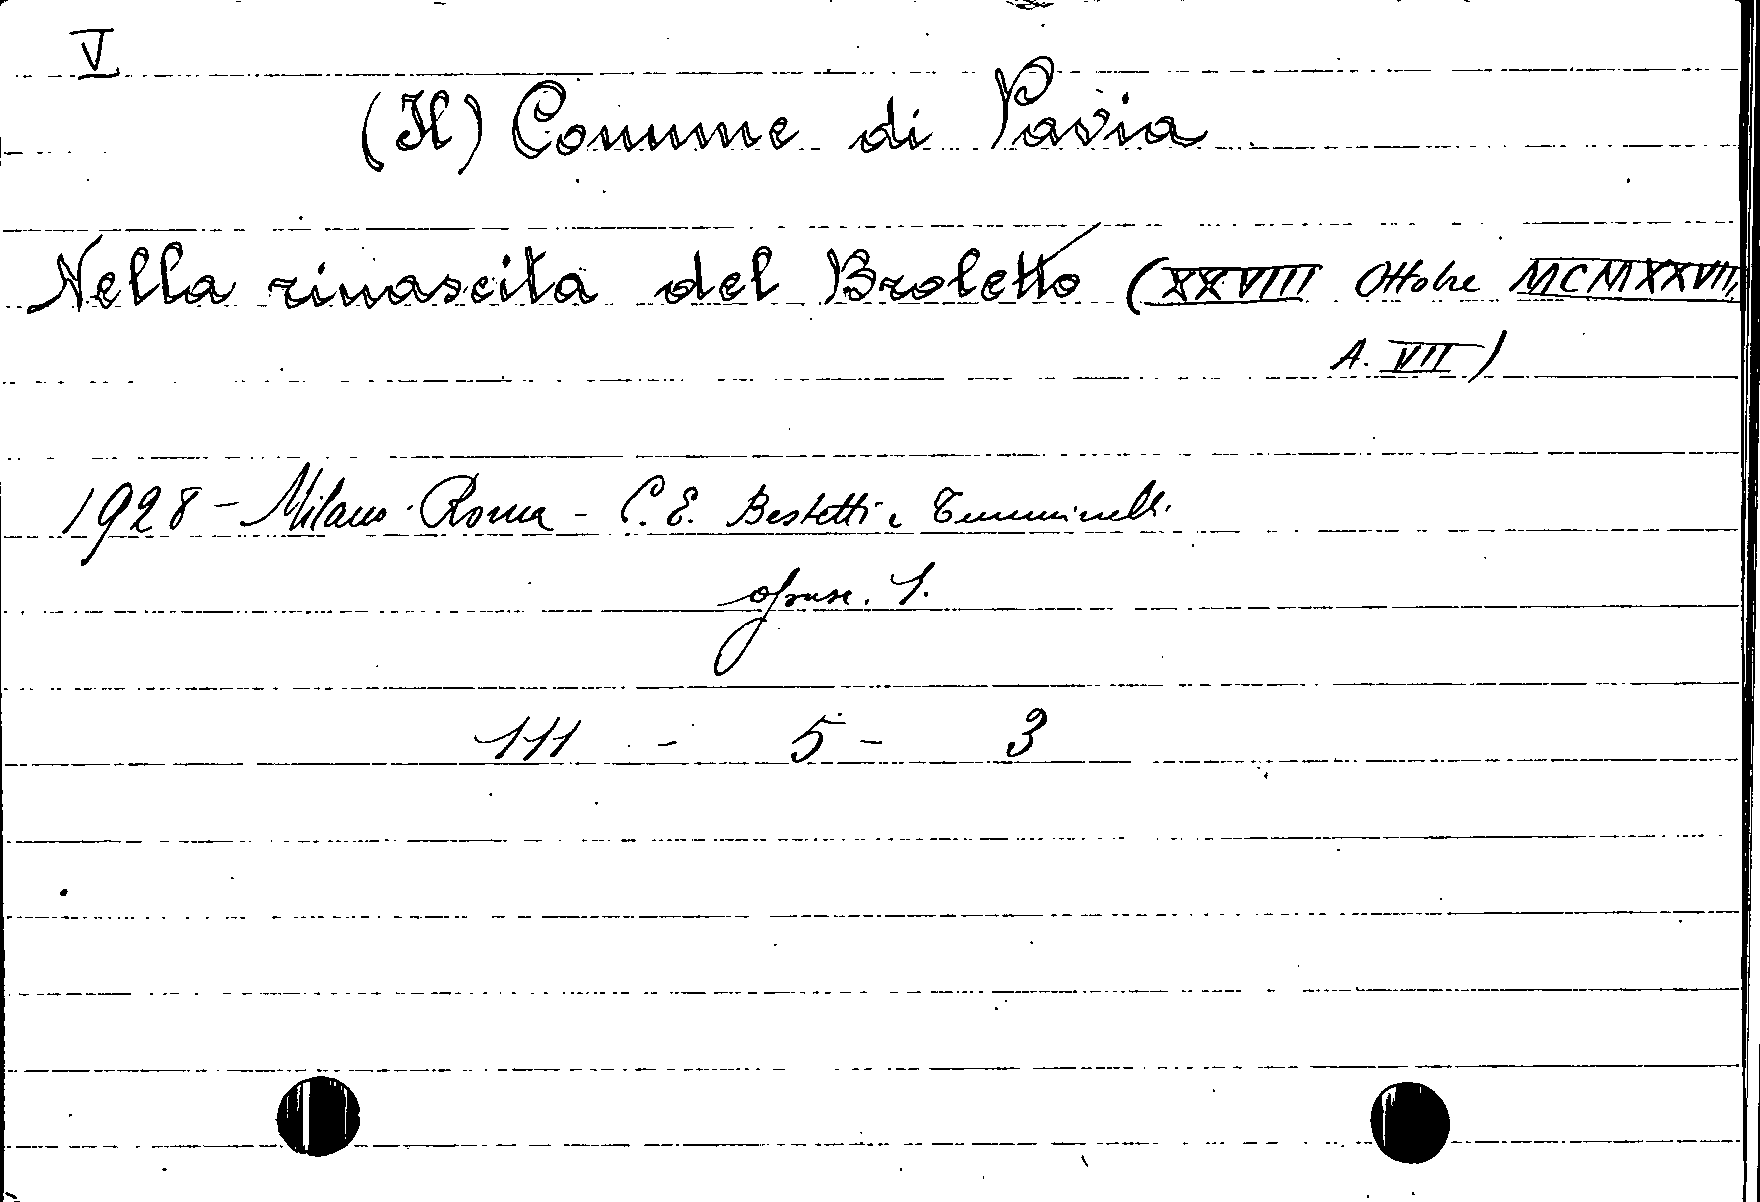 V
(Il) Comune di Pavia
Nella rinascita del Broletto (XXVIII Ottobre MCMXXVIII,
A. VII)
1928 - Milano-Roma - C. E. Bestetti e Tumminelli.
opusc. 1.
111 - 5 - 3